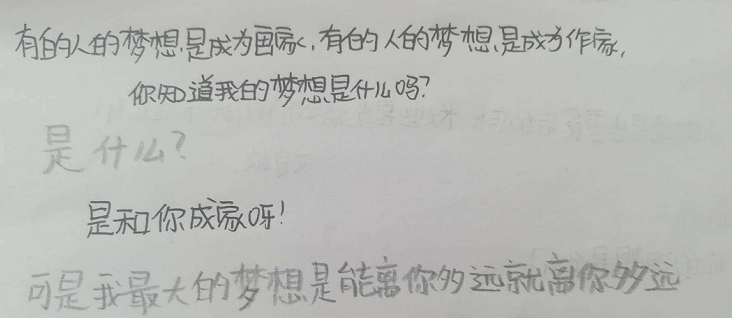 有的人的梦想,是成为画家,有的人的梦想,是成为作家,
你知道我的梦想是什么吗?
是什么?
是和你成家呀!
可是我最大的梦想是能离你多远就离你多远